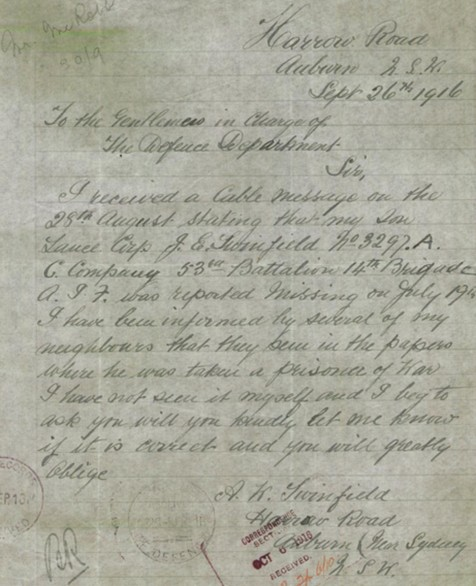 Mr McRobb
30/9
Harrow Road
Auburn N.S.W.
Sept 26th 1916
To the Gentlemen in Charge of
The Defence Department
Sir,
I received a Cable Message on the
28th August stating that my Son
Lance Corp J. E. Twinfield No 3297.A.
C. Company 53rd Battalion 14th Brigade
A. I. F. was reported Missing on July 19th
I have been informed by several of my
neighbours that they seen in the papers
where he was taken a prisoner of War
I have not seen it myself and I beg to
ask you will you kindly let me know
if it is correct and you will greatly
Oblige
A. W. Twinfield
Harrow Road
Auburn (Near Sydney
N. S. W.
DEFENCE
OCT 1916
RECEIVED